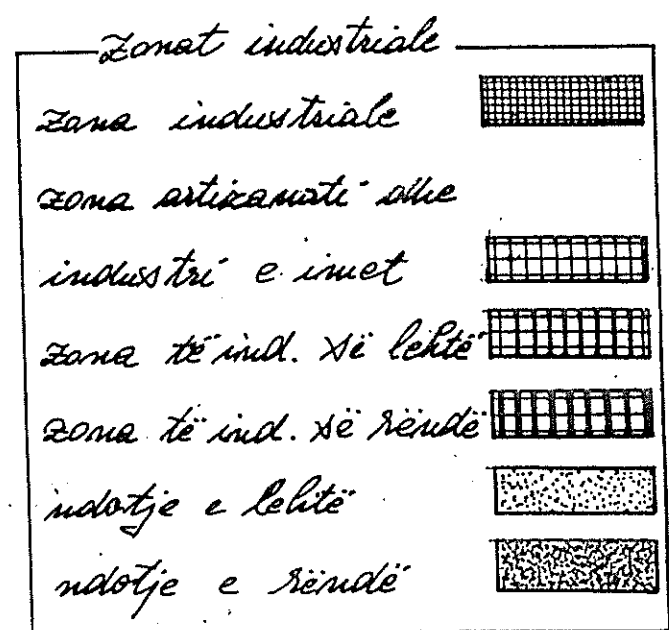 Zonat industriale
zona industriale
zona artizanati dhe
industri e imet
zona të ind. së lehtë
zona të ind. së rëndë
ndotje e lehtë
ndotje e rëndë